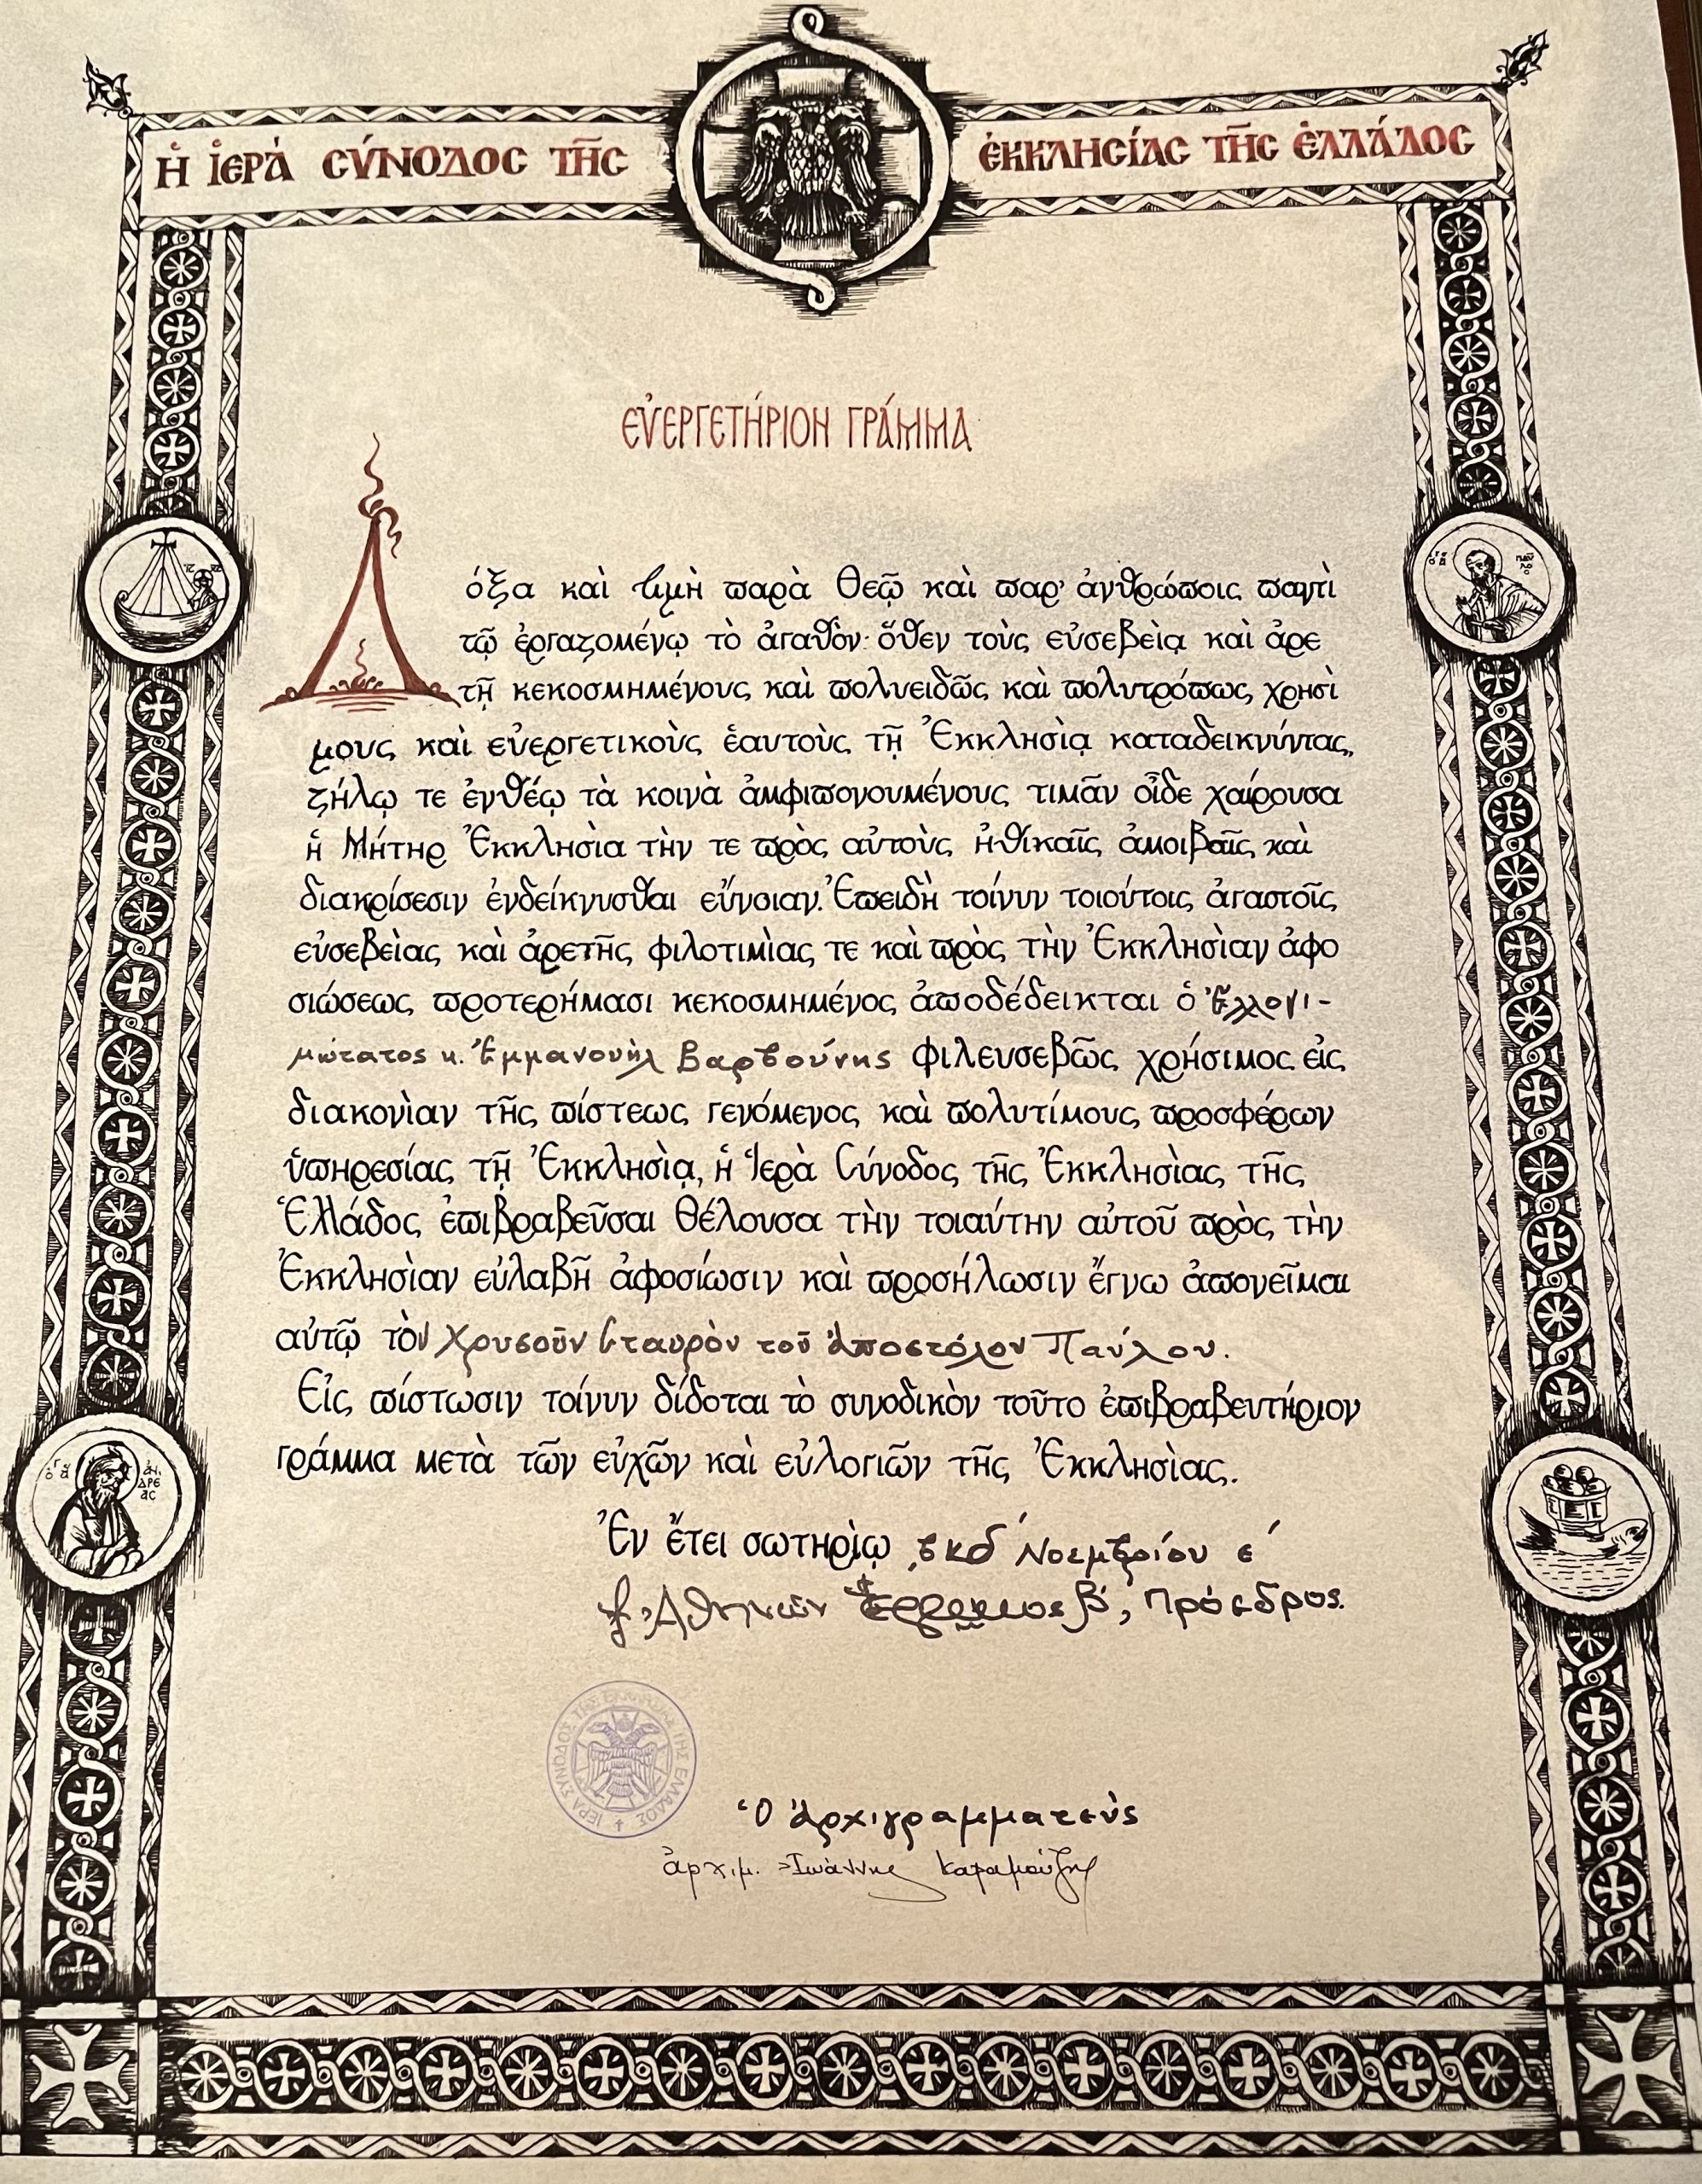 Ἡ ἹΕΡᾺ ΣΎΝΟΔΟΣ ΤΗ͂Σ ἘΚΚΛΗΣΊΑΣ ΤΗ͂Σ ἙΛΛΆΔΟΣ
ΕΥ̓ΕΡΓΕΤΉΡΙΟΝ ΓΡΆΜΜΑ
Δόξα καὶ τιμὴ παρὰ Θεῷ καὶ παρ' ἀνθρώποις παντὶ
τῷ ἐργαζομένῳ τὸ ἀγαθὸν· ὅθεν τοὺς εὐσεβεὶᾳ καὶ ἀρε
τῇ κεκοσμημένους καὶ πολυειδῶς καὶ πολυτρόπως χρησὶ
μους καὶ εὐεργετικοὺς ἑαυτοὺς τῇ Ἐκκλησὶᾳ καταδεικνύντας,
ζήλῳ τε ἐνθέῳ τὰ κοινὰ ἀμφιπονουμένους τιμᾶν οἶδε χαίρουσα
ἡ Μήτηρ Ἐκκλησὶα τὴν τε πρὸς αὐτοὺς ἠθικαῖς ἀμοιβαῖς καὶ
διακρίσεσιν ἐνδείκνυσθαι εὔνοιαν. Ἐπειδὴ τοίνυν τοιούτοις ἀγαστοῖς
εὐσεβεὶας καὶ ἀρετῆς φιλοτιμὶας τε καὶ πρὸς τὴν Ἐκκλησὶαν ἀφο
σιώσεως προτερήμασι κεκοσμημένος ἀποδέδεικται ὁ Ἐλλογι-
μώτατος κ. Ἐμμανουὴλ Βαρβούνης φιλευσεβῶς χρήσιμος εἰς
διακονὶαν τῆς πίστεως γενόμενος καὶ πολυτίμους προσφέρων
ὑπηρεσίας τῇ Ἐκκλησὶᾳ, ἡ Ἱερὰ Σύνοδος τῆς Ἐκκλησὶας τῆς
Ἑλλάδος ἐπιβραβεῦσαι θέλουσα τὴν τοιαύτην αὐτοῦ πρὸς τὴν
Ἐκκλησὶαν εὐλαβῆ ἀφοσίωσιν καὶ προσήλωσιν ἔγνω ἀπονεῖμαι
αὐτῷ τὸν Χρυσοῦν Σταυρὸν τοῦ Ἀποστόλου Παύλου.
Εἰς πίστωσιν τοίνυν δίδοται τὸ συνοδικὸν τοῦτο ἐπιβραβευτήριον
γράμμα μετὰ τῶν εὐχῶν καὶ εὐλογιῶν τῆς Ἐκκλησὶας.
Ἐν ἔτει σωτηρὶῳ ͵βκδ΄ Νοεμβρίου ε΄
† Ἀθηνῶν Ἱερώνυμος Β΄, Πρόεδρος.
ΙΕΡΑ ΣΥΝΟΔΟΣ ΤΗΣ ΕΚΚΛΗΣΙΑΣ ΤΗΣ ΕΛΛΑΔΟΣ
Ὁ Ἀρχιγραμματεὺς
ἀρχιμ. Ἰωάννης Καραμούζης
ΙC ΧC
Ο ΑΓΙΟC ΠΑΥΛΟC
Ο ΑΓΙΟC ΑΝΔΡΕΑC